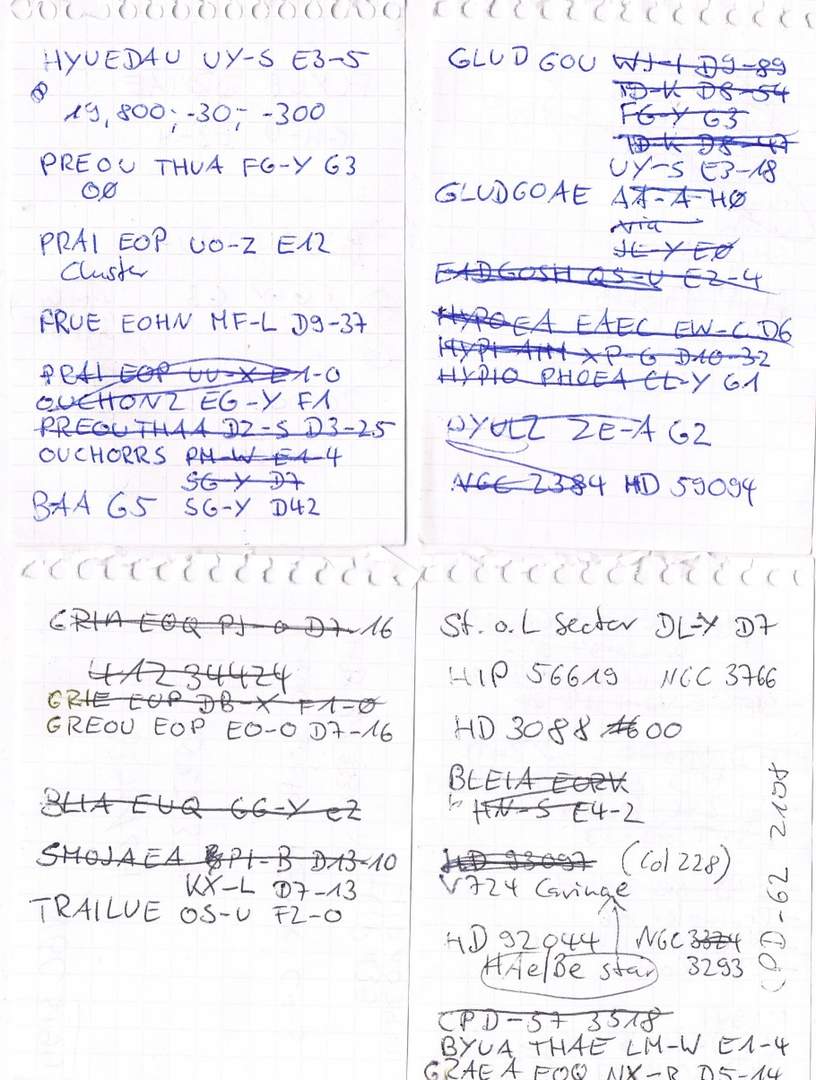 HYUEDAU UY-S E3-5
19,800; -30; -300
PREOU THUA FG-Y G3
OØ
PRAI EOP UO-Z E12
Cluster
FRUE EOHN MF-L D9-37
PRAI EOP UU-X E1-0
OUCHONZ EG-Y F1
PREOUTHAA DZ-S D3-25
OUCHORRS PM-W E1-4
SG-Y D7
BAA G5 SG-Y D42
GLUDGOU WJ-I D9-89
TD-K D8-54
FG-Y G3
TD-K D8-47
UY-S E3-18
GLUDGOAE AA-A HØ
via
JL-Y EØ
EADGOSH QS-U E2-4
HYPOEA EAEC EW-C D6
XP-G D10-32
HYPIO PHOEA CL-Y G1
ZE-A G2
NGC 2384 HD 59094
GRIA EOQ PJ-O D7-16
4123 4424
GRIE EOP DB-X F1-0
GREOU EOP EO-O D7-16
BLIA EUQ GG-Y e2
SMOJAEA PI-B D13-10
KX-L D7-13
TRAILUE OS-U F2-0
St. o. L Sector DL-Y D7
HIP 56619 NGC 3766
HD 3088 00
BLEIA EORK
HN-S E4-2
HD 93097 (Col 228)
V724 Carinae
HD 92044 NGC 3324
HAe/Be star 3293
CPD-62 2108
CPD-57 3518
BYUA THAE LM-W E1-4
GRAEA EOQ NX-B D5-14